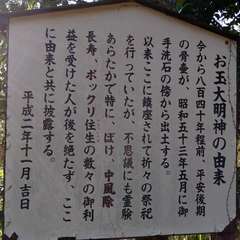 お玉大明神の由来
今から八百四十年程前、平安後期
の骨壷が、昭和五十三年五月に御
手洗石の傍から出土する。
以来ここに鎮座されて折々の祭祀
を行っていたが、不思議にも霊験
あらたかで特に、ぼけ、中風除
長寿、ポックリ往生の数々の御利
益を受けた人が後を絶たず、ここ
に由来と共に披露する。
平成二年十一月吉日